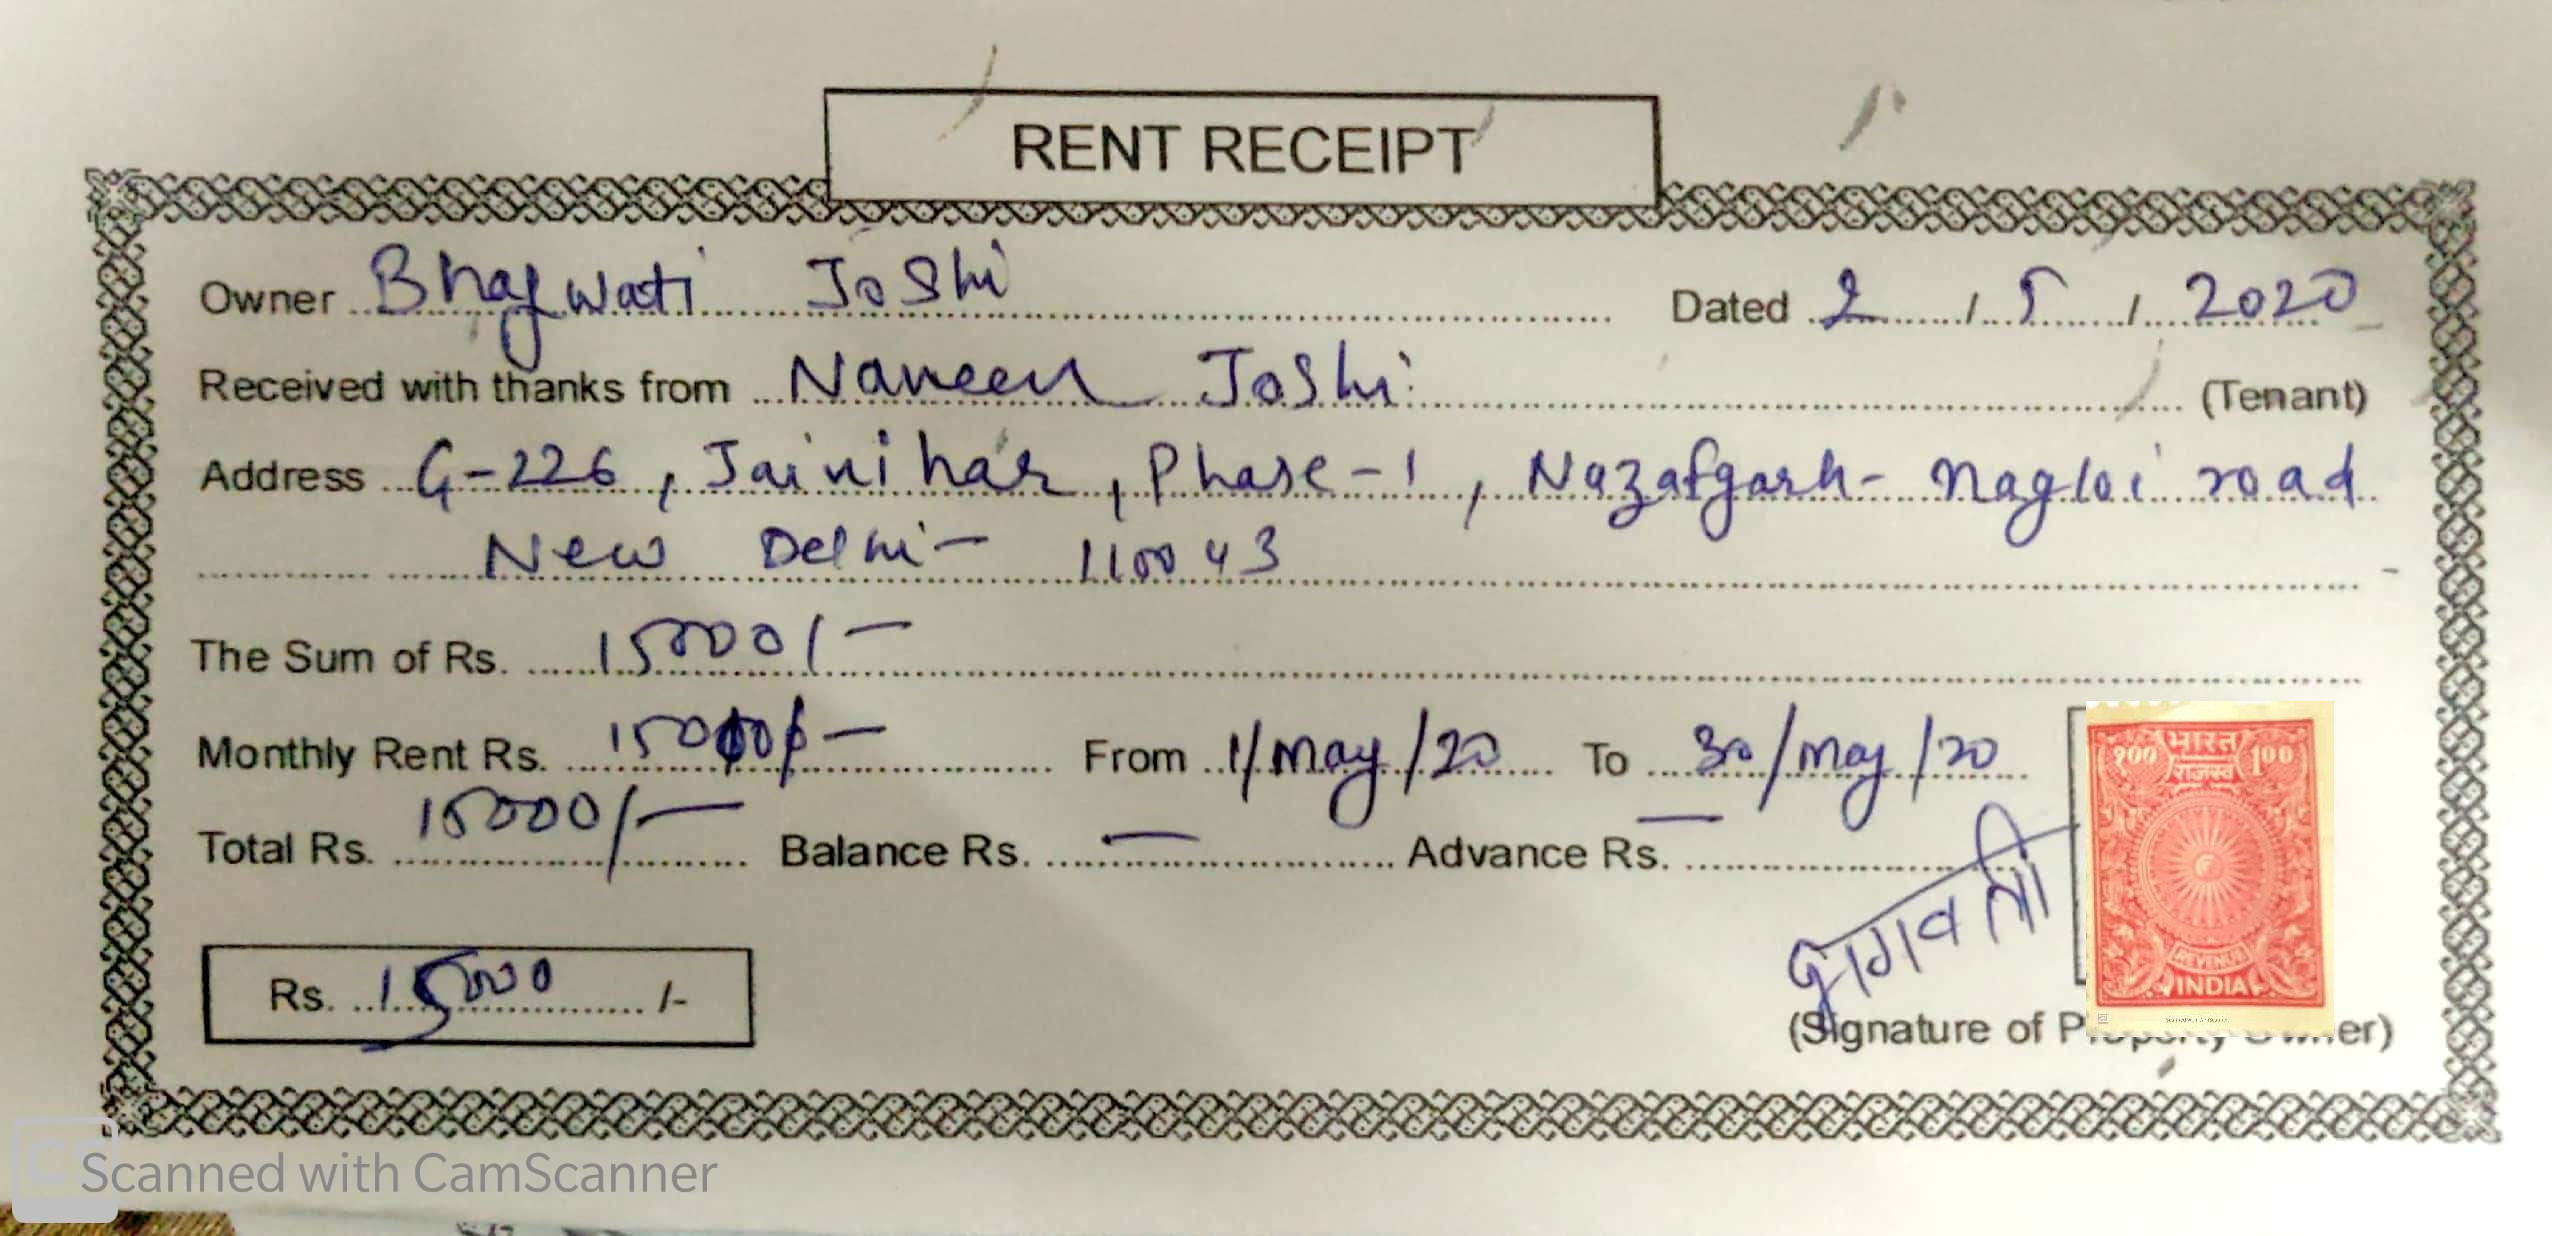 RENT RECEIPT
Owner Bhagwati Joshi Dated 2 / 5 / 2020
Received with thanks from Naveen Joshi (Tenant)
Address G-226, Jai vihar, Phase-1, Nazafgarh- Nagloi road
New Delhi- 110043
The Sum of Rs. 15000/-
Monthly Rent Rs. 15000/- From 1/may/20 To 30/may/20
Total Rs. 15000/- Balance Rs. — Advance Rs. —
Rs. 15000 /-
भगवती
(Signature of Property Owner)
भारत
१०० राजस्व 100
REVENUE
INDIA
Scanned with CamScanner